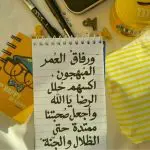 ورفاق العمر
المبهجون،
اكسهم حُلل
الرضا ياالله
واجعل صُحبتنا
ممتدة حتى
الظلال والجنة